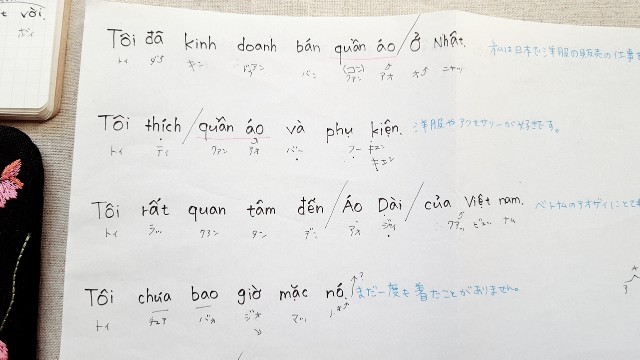 vời.
ボイ
Tôi đã kinh doanh bán quần áo/ở Nhật. 私は日本で洋服の販売の仕事を
トイ キン バン (コン) アオ
Tôi thích/quần áo và phụ kiện. 洋服やアクセサリーが好きです。
トイ ティ クァン アオ バー フー キェン
Tôi rất quan tâm đến/Áo Dài/của Việt nam. ベトナムのアオザイにとても
トイ タン デン アオ ジャイ ナム
Tôi chưa bao giờ mặc nó. まだ一度も着たことがありません。
トイ チュア バオ ジオ マッ